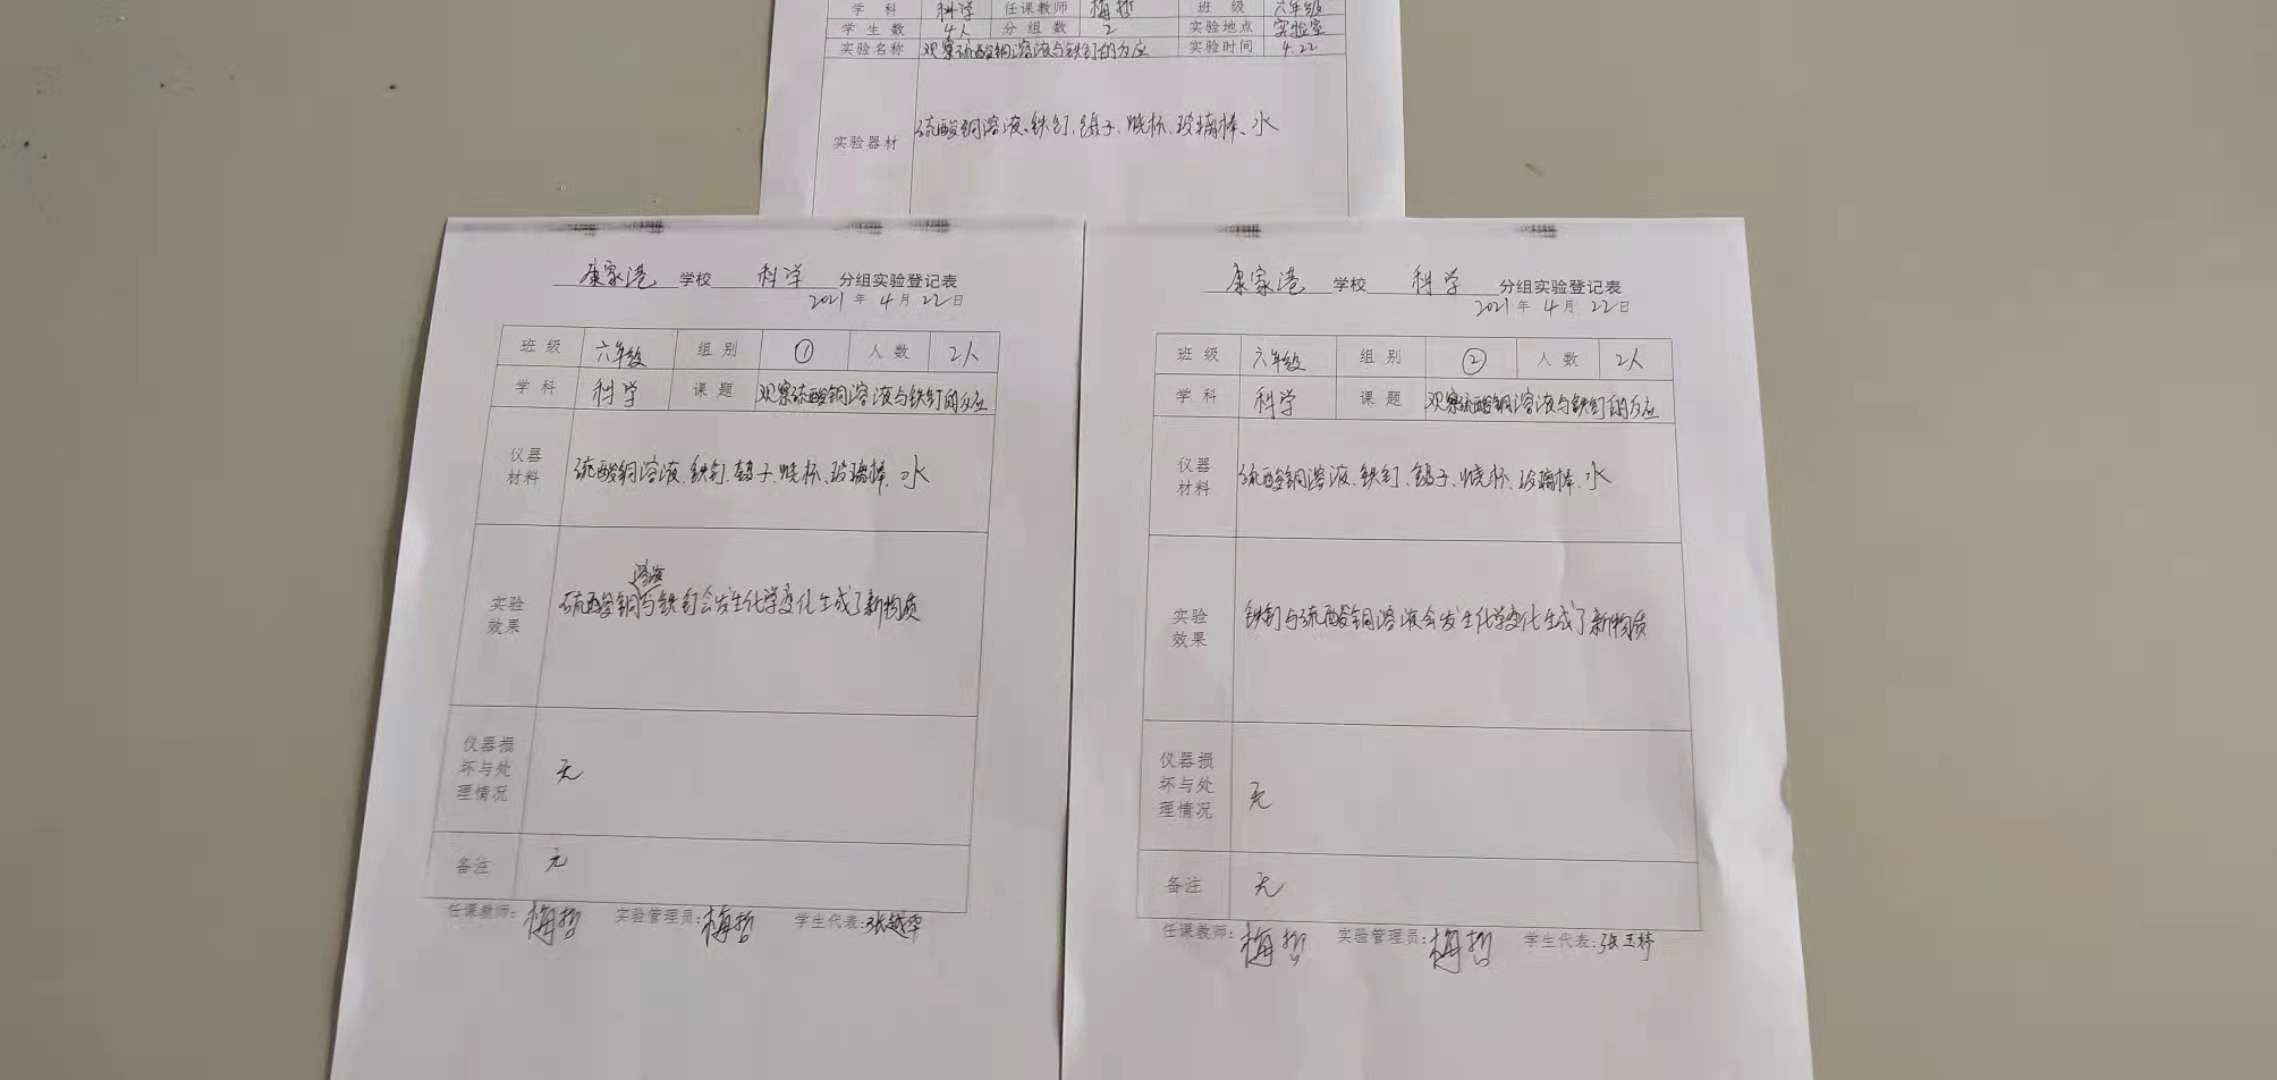 学科 科学 任课教师 梅哲 班级 六年级
学生数 4人 分组数 2 实验地点 实验室
实验名称 观察硫酸铜溶液与铁钉的反应 实验时间 4.22
实验器材 硫酸铜溶液、铁钉、镊子、烧杯、玻璃棒、水
康家港 学校 科学 分组实验登记表
2021年4月22日
班级 六年级 组别 ① 人数 2人
学科 科学 课题 观察硫酸铜溶液与铁钉的反应
仪器
材料
硫酸铜溶液、铁钉、镊子、烧杯、玻璃棒、水
实验
效果
硫酸铜溶液与铁钉会发生化学变化生成了新物质
仪器损
坏与处
理情况
无
备注 无
任课教师:梅哲 实验管理员:梅哲 学生代表:张越华
康家港 学校 科学 分组实验登记表
2021年4月22日
班级 六年级 组别 ② 人数 2人
学科 科学 课题 观察硫酸铜溶液与铁钉的反应
仪器
材料
硫酸铜溶液、铁钉、镊子、烧杯、玻璃棒、水
实验
效果
铁钉与硫酸铜溶液会发生化学变化生成了新物质
仪器损
坏与处
理情况
无
备注 无
任课教师:梅哲 实验管理员:梅哲 学生代表:张玉婷